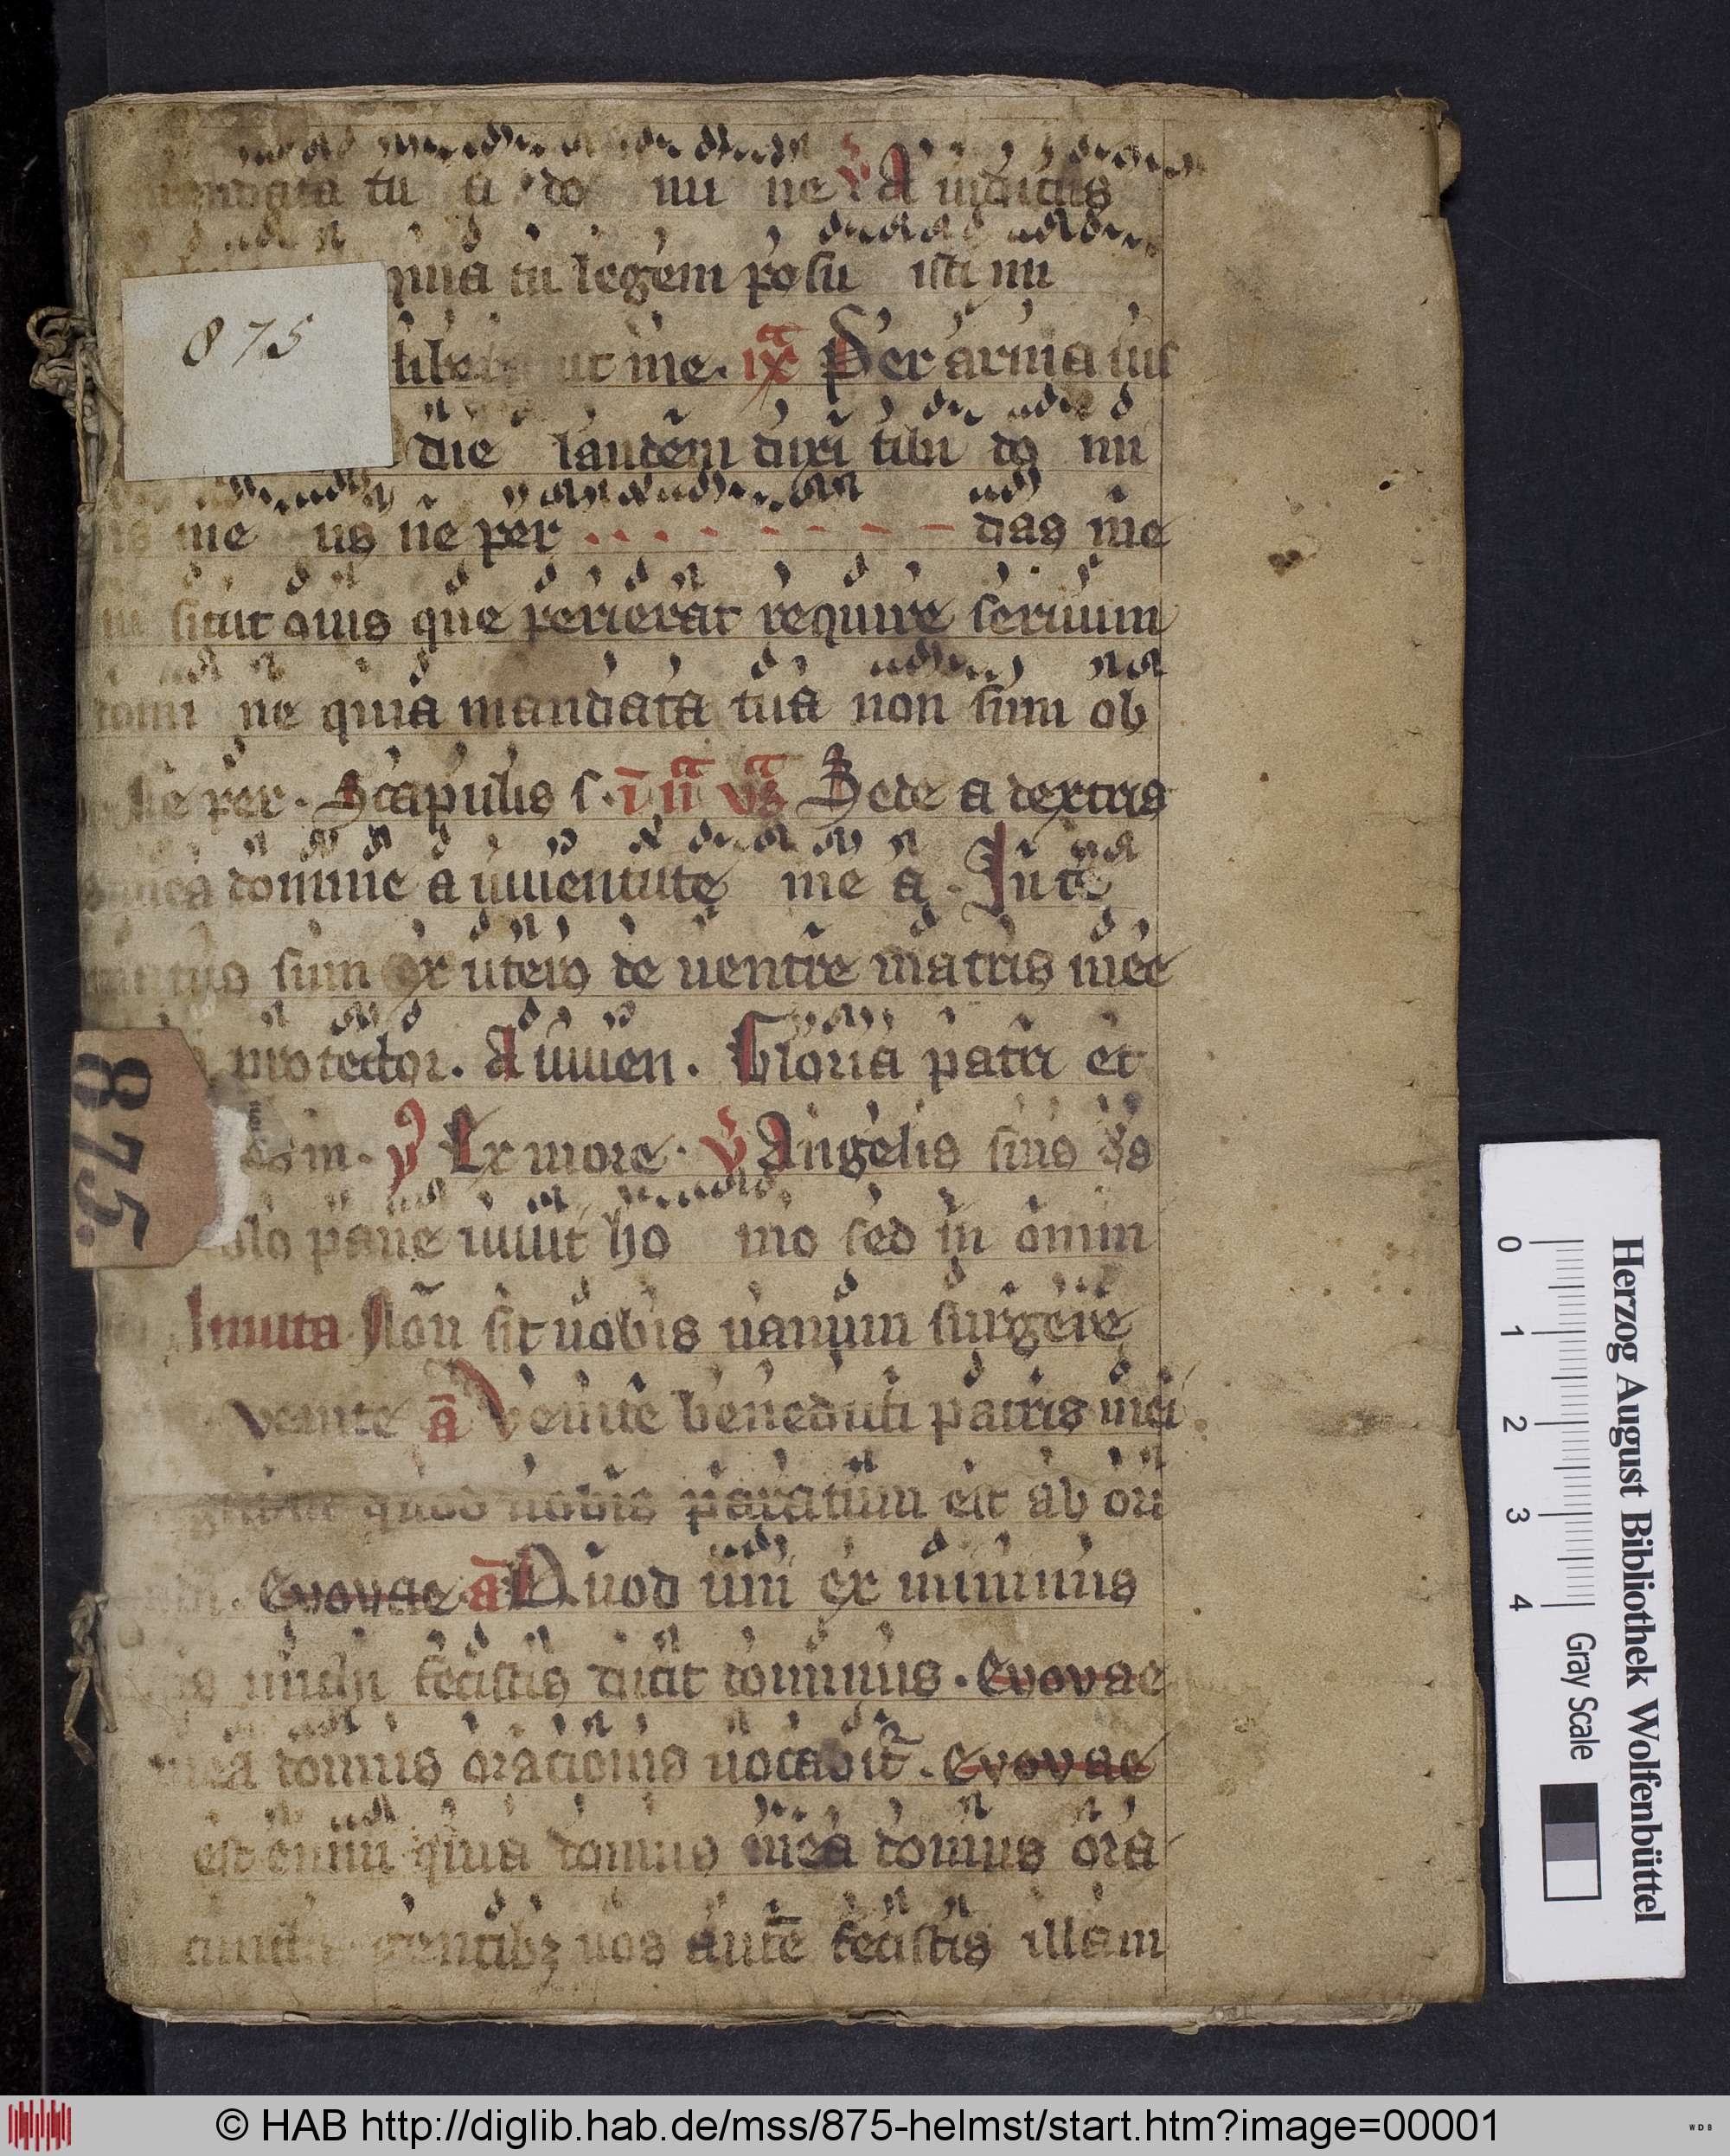 tu a do mi ne v A iudiciis
quia tu legem posu isti mi
875
ut me. ix Per arma ius
die laudem dixi tibi do mi
ns me us ne per das me
sicut ouis que perierat require seruum
domi ne quia mandata tua non sum ob
ne per. Scapulis s. in iia vs Sede a dextris
mea domine a iuuentute me a. In te
sum ex utero de uentre matris mee
protector. A iuuen. Gloria patri et
875.
in. y Ex more. v Angelis suis ds
solo pane uiuit ho mo sed in omni
Inuita Non sit uobis uanum surgere
venite a Venite benedicti patris mei
quod uobis paratum est ab ori
Evovae. a Quod uni ex minimis
michi fecistis dicit dominus. Evovae
mea domus orationis uocabitr. Evovae
est enim quia domus mea domus ora
cunctis gentibz uos aute fecistis illam
0 1 2 3 4 Gray Scale
Herzog August Bibliothek Wolfenbüttel
© HAB http://diglib.hab.de/mss/875-helmst/start.htm?image=00001
WDB